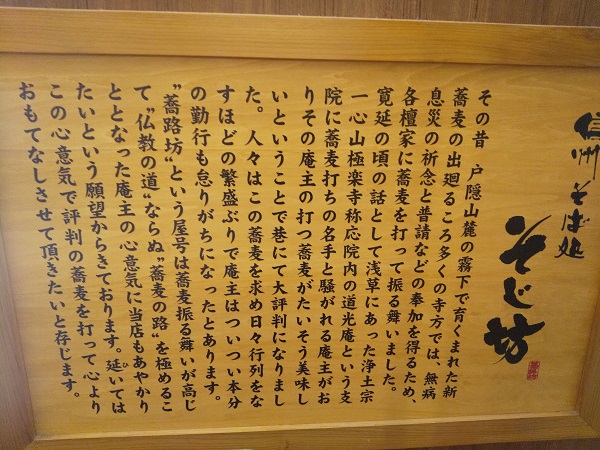 信州そば処
そじ坊
その昔 戸隠山麓の霧下で育くまれた新
蕎麦の出廻るころ多くの寺方では、無病
息災の祈念と普請などの奉加を得るため、
各檀家に蕎麦を打って振る舞いました。
寛延の頃の話として浅草にあった浄土宗
一心山極楽寺称応院内の道光庵という支
院に蕎麦打ちの名手と騒がれる庵主がお
りその庵主の打つ蕎麦がたいそう美味し
いということで巷にて大評判になりまし
た。人々はこの蕎麦を求め日々行列をな
すほどの繁盛ぶりで庵主はついつい本分
の勤行も怠りがちになったとあります。
"蕎路坊"という屋号は蕎麦振る舞いが高じ
て"仏教の道"ならぬ"蕎麦の路"を極めるこ
ととなった庵主の心意気に当店もあやかり
たいという願望からきております。延いては
この心意気で評判の蕎麦を打って心より
おもてなしさせて頂きたいと存じます。